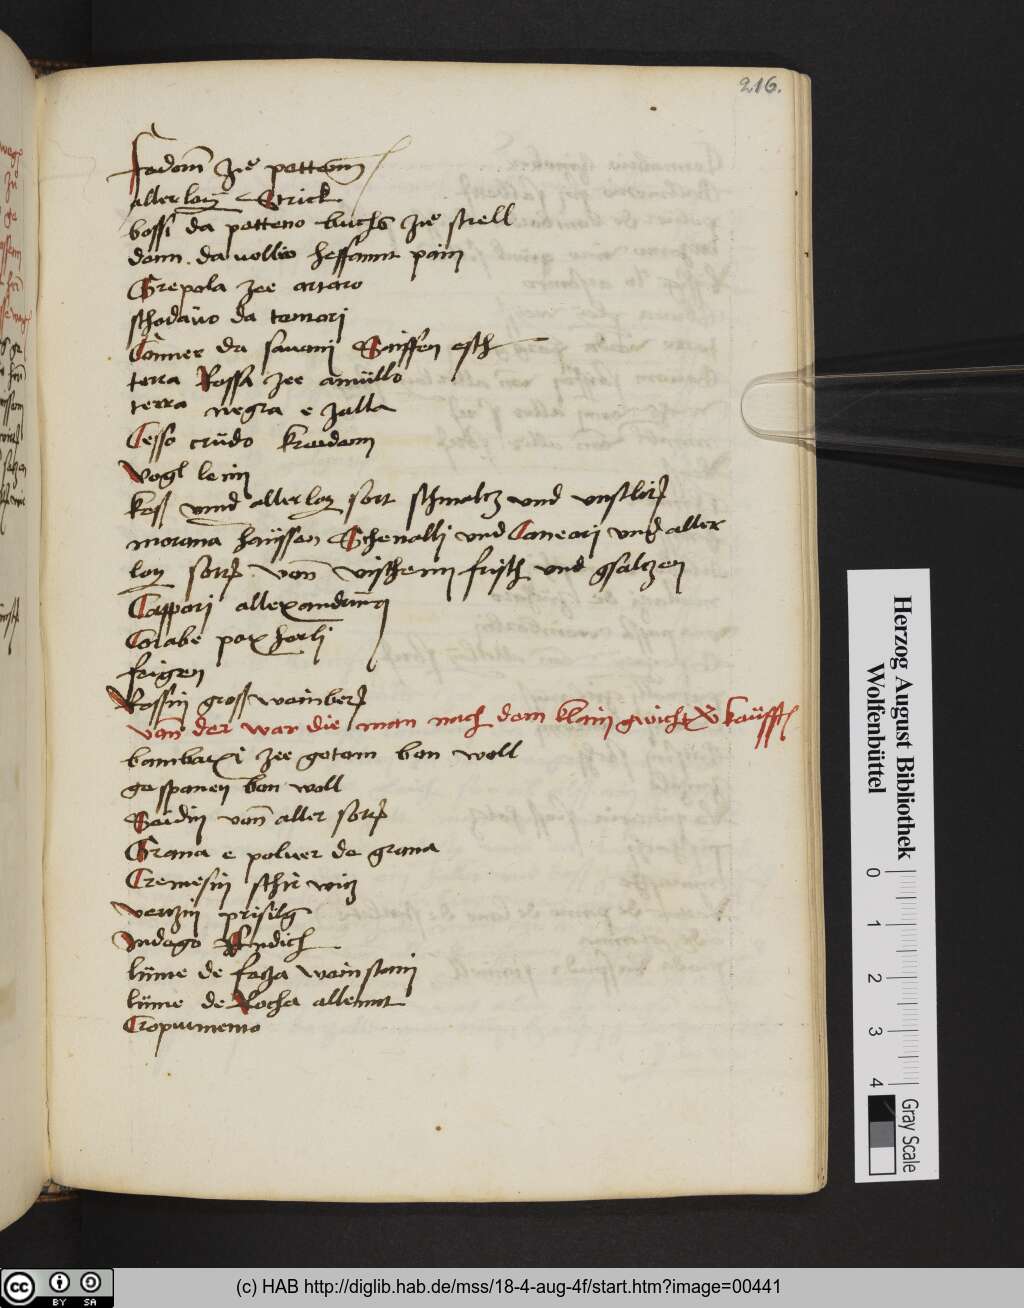 216.
Fadom zu pottomm
allerlay Strick
bossi da potteno buchs zu strell
donn. da uolltio heffannt pain
Grepola zee artaro
schodaüo da temari
Cönner da sauani Saiffen esch
terra Rossa zee amüllo
terra negra e zalla
Cesso crüdo kreidem
Vogl leim
keß vnnd allerlay sort schmaltz vnd vnstlitz
morona haüssen Schenalli vnd Caneori vnd aller
lay sortt. von vischenn frisch vnd gsaltzen
Cappari allexandrinij
Corabe poxhorli
feigen
Rossin gross weinber
Von der war die man nach dem klain gwicht v̈ kaüfft
bambaxi zee gotom bon woll
gesponen bon woll
Seidin von aller sortt
Grana e poluer de grana
Cremesin schit witz
verzin prisilg
Indago Endich
lüme de feza weinstain
lüme de Rocha allemnt
Cropurmemo
Herzog August Bibliothek
Wolfenbüttel
0 1 2 3 4
Gray Scale
cc BY SA
(c) HAB http://diglib.hab.de/mss/18-4-aug-4f/start.htm?image=00441